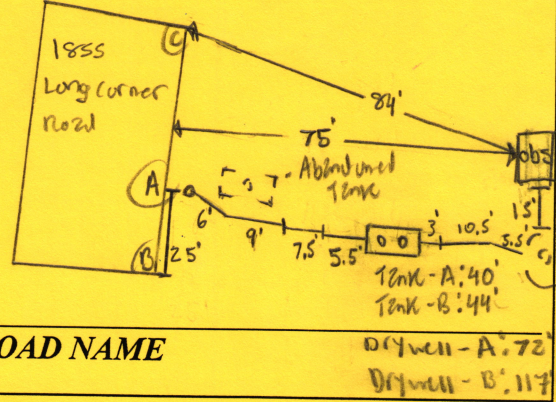 1855
Long Corner
Road
C
84'
75'
obs
Abandoned
Tank
A
6'
9'
7.5'
5.5'
3'
10.5'
5.5'
15'
B
25'
Tank - A: 40'
Tank - B: 44'
OAD NAME
Drywell - A: 72'
Drywell - B: 117'